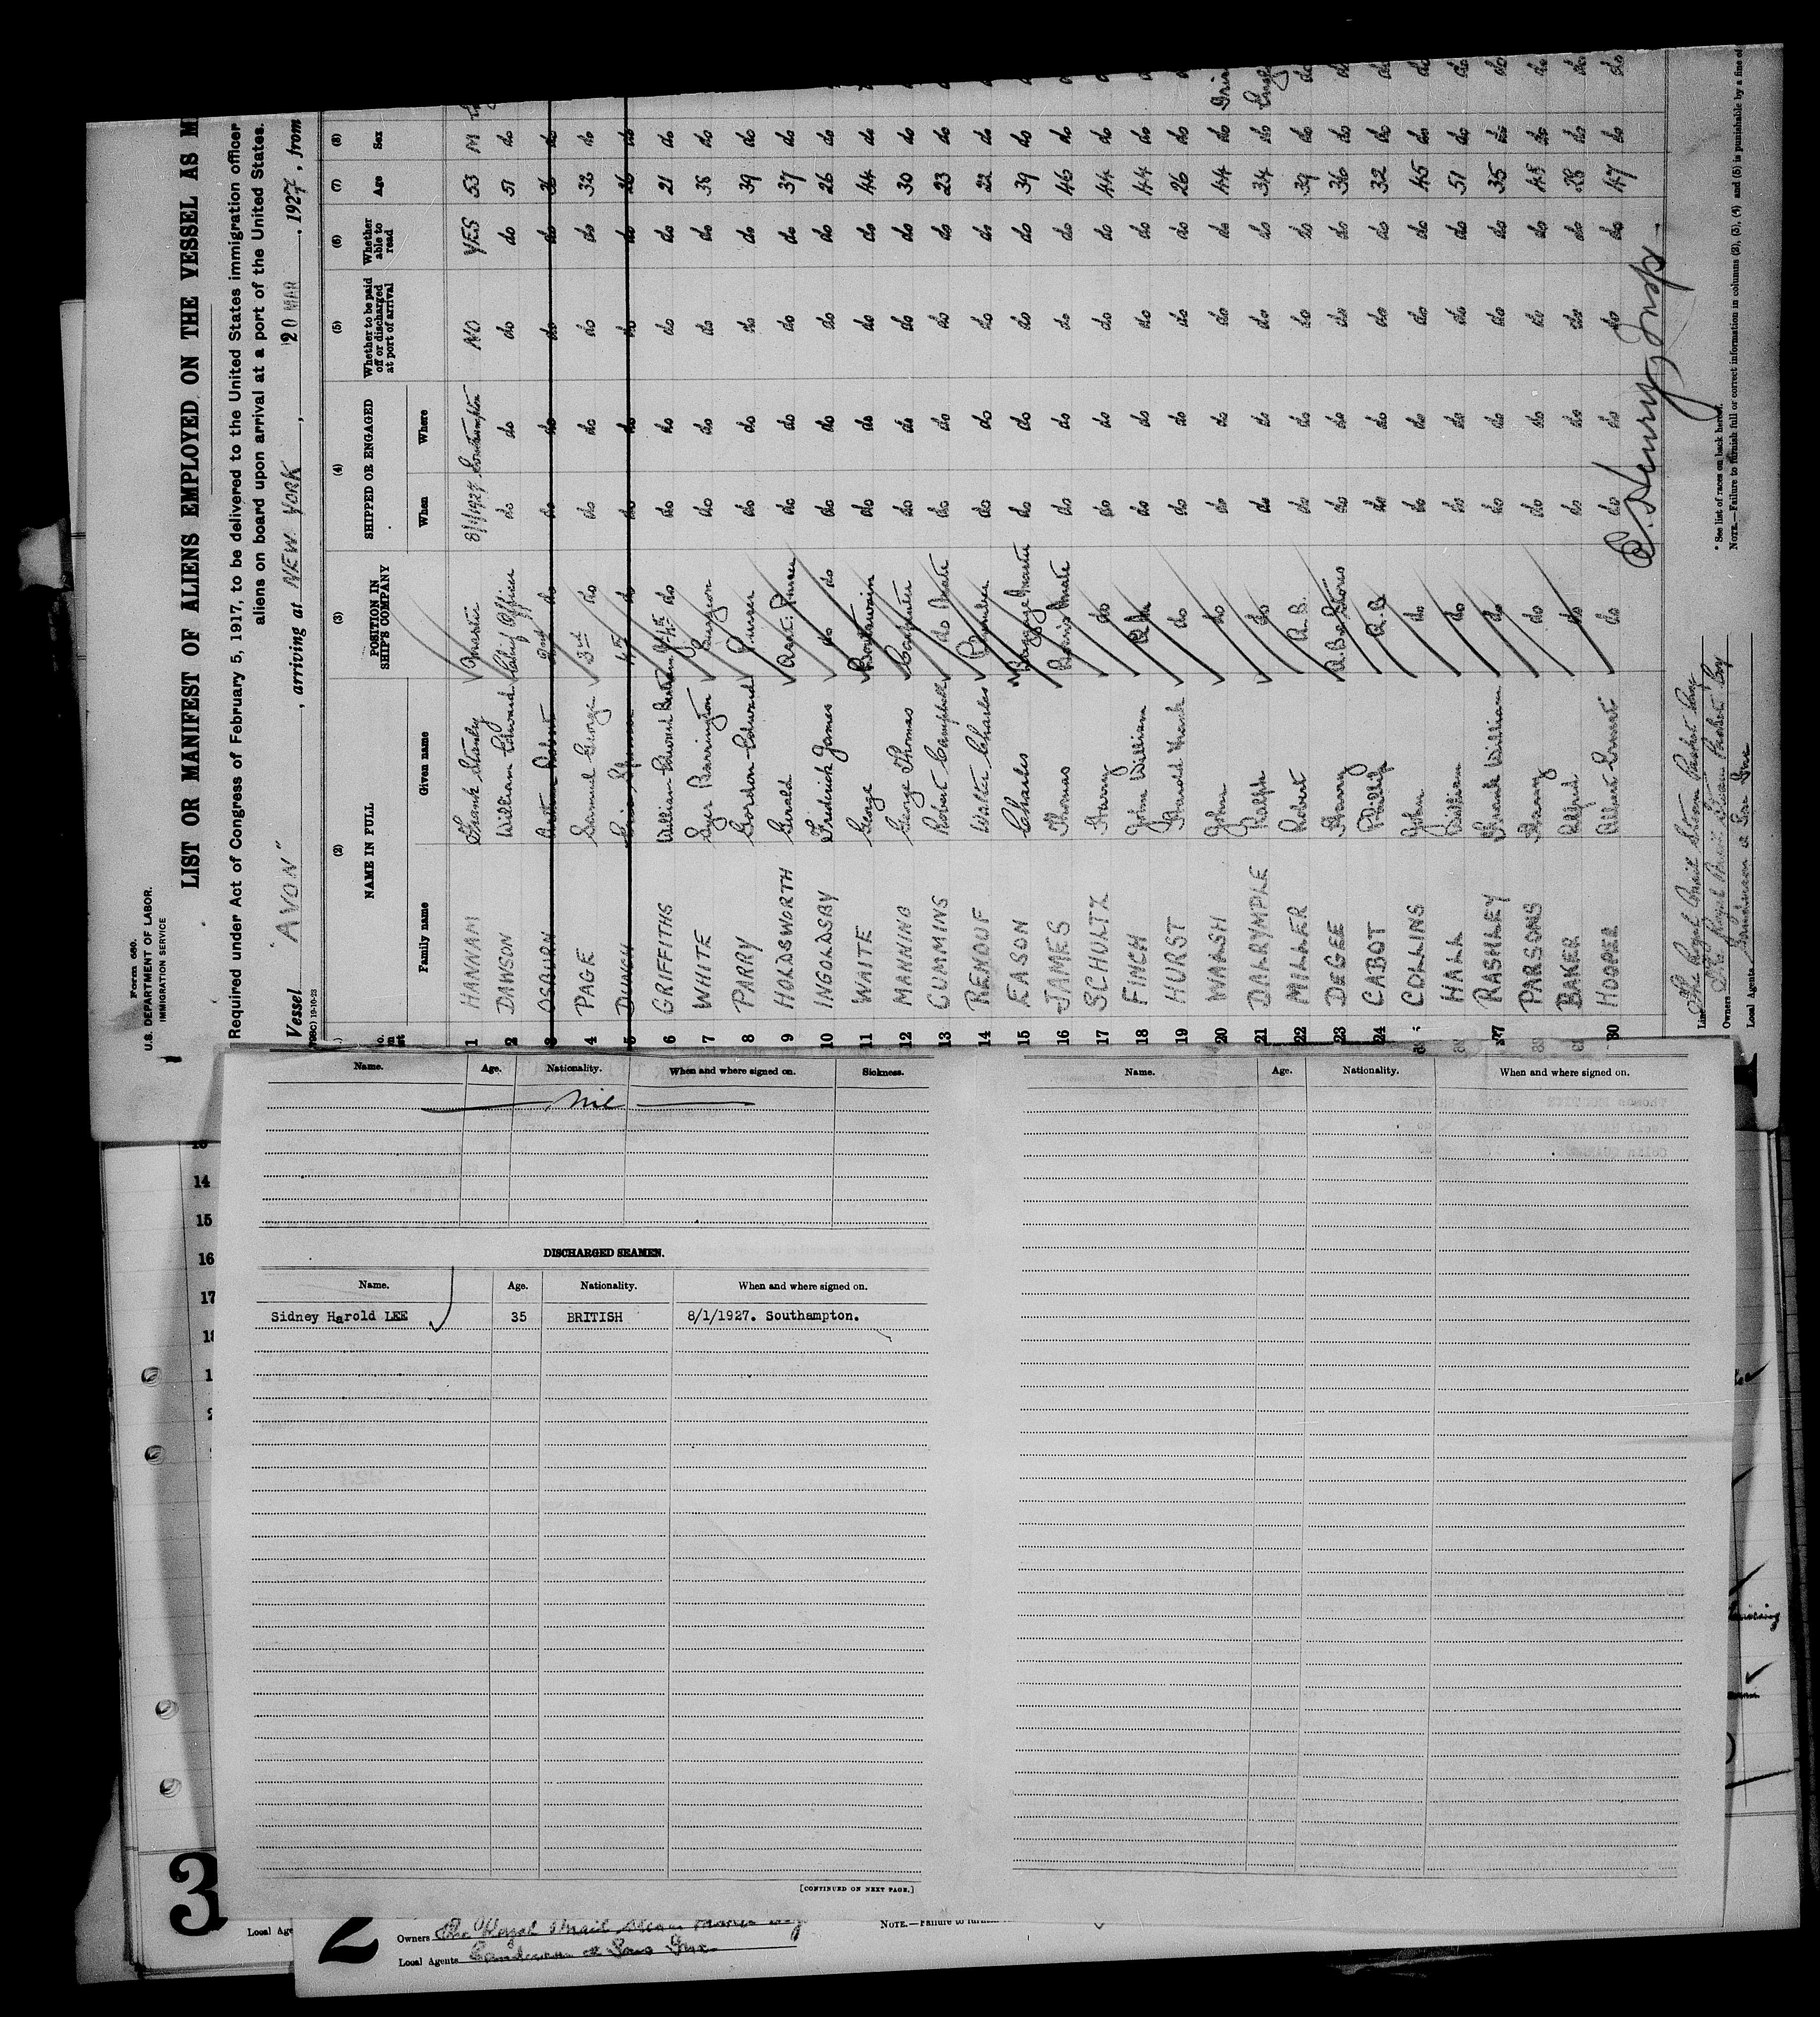 Form 680.
U.S. DEPARTMENT OF LABOR
IMMIGRATION SERVICE
LIST OR MANIFEST OF ALIENS EMPLOYED ON THE VESSEL AS M
Required under Act of Congress of February 5, 1917, to be delivered to the United States immigration officer
aliens on board upon arrival at a port of the United States.
Vessel "AVON", arriving at NEW YORK, 20 MAR, 1927, from
(2) (3) (4) (5) (6) (7) (8)
NAME IN FULL POSITION IN SHIP'S COMPANY SHIPPED OR ENGAGED Whether to be paid off or discharged at port of arrival Whether able to read Age Sex
Family name Given name When Where
1 HANNAM Frank Stanley Master 8/1/1927 Southampton NO YES 53 M
2 DAWSON William Edward Chief Officer do do do do 51 do
3 OSBURN Robert 2nd do do do do do 36 do
4 PAGE Samuel George 3rd do do do do do 32 do
5 4th do do do do do 26 do
6 GRIFFITHS William do do do do do 21 do
7 WHITE Barrington Surgeon do do do do 38 do
8 PARRY Gordon Edward Purser do do do do 39 do
9 HOLDSWORTH Gerald Asst. Purser do do do do 37 do
10 INGOLDSBY Fredrick James do do do do do do 26 do
11 WAITE George Boatswain do do do do 44 do
12 MANNING George Thomas Carpenter do do do do 30 do
13 CUMMINS Robert Campbell do Mate do do do do 23 do
14 RENOUF Walter Charles Plumber do do do do 22 do
15 EASON Charles Baggage Master do do do do 39 do
16 JAMES Thomas Bosn's Mate do do do do 46 do
17 SCHULTZ Harry do do do do do 44 do
18 FINCH John William Q.M. do do do do 44 do
19 HURST Harold Frank do do do do do 26 do
20 WALSH John do do do do do 44 do
21 DALRYMPLE Ralph do do do do do 34 do
22 MILLER Robert A.B. do do do do 39 do
23 DEGEE Harry A.B. & Stores do do do do 36 do
24 CABOT Philip A.B. do do do do 32 do
COLLINS John do do do do do 45 do
HALL William do do do do do 51 do
27 RASHLEY Frank William do do do do do 35 do
PARSONS Harry do do do do do 48 do
BAKER Alfred do do do do do 28 do
30 HOOPER Albert Ernest do do do do do 47 do
Line The Royal Mail Steam Packet Coy
Owners The Royal Mail Steam Packet Coy
Local Agents Sanderson & Son Inc
* See list of races on back hereof.
NOTE.—Failure to furnish full or correct information in columns (2), (3), (4) and (5) is punishable by a fine of
Name. Age. Nationality. When and where signed on. Sickness.
Nil
DISCHARGED SEAMEN.
Name. Age. Nationality. When and where signed on.
Sidney Harold LEE 35 BRITISH 8/1/1927. Southampton.
[CONTINUED ON NEXT PAGE.]
Name. Age. Nationality. When and where signed on.
14
15
16
17
3
Local Age
2
Owners The Royal Mail Steam Packet Coy
Local Agents Sanderson & Sons Inc
NOTE.—Failure to furn